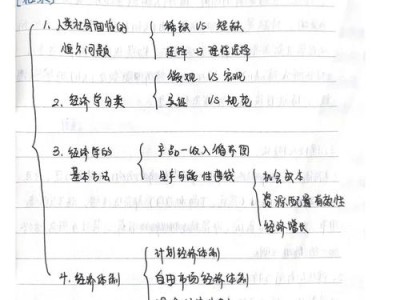 1. 人类社会面临的
恒久问题
稀缺 VS 短缺
选择与理性选择
微观 VS 宏观
2. 经济学分类
实证 VS 规范
3. 经济学的
基本方法
产品—收入循环图
生产可能性曲线
机会成本
资源配置有效性
经济增长
计划经济体制
4. 经济体制
自由市场经济体制